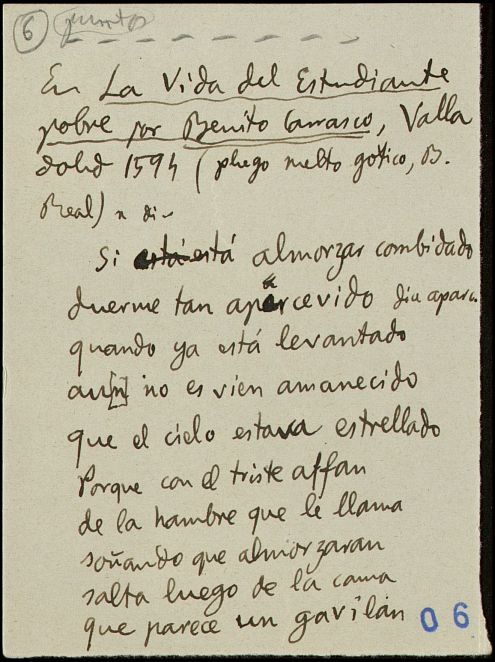 6 juntos
En La Vida del Estudiante
pobre por Benito Carrasco, Valla
dolid 1594 (pliego suelto gotico, B.
Real) se di-
Si está está almorzar combidado
duerme tan apercevido
quando ya está levantado
au[n] no es vien amanecido
que el cielo estava estrellado
Porque con el triste affan
de la hambre que le llama
soñando que almorzaran
salta luego de la cama
que parece un gavilan
06